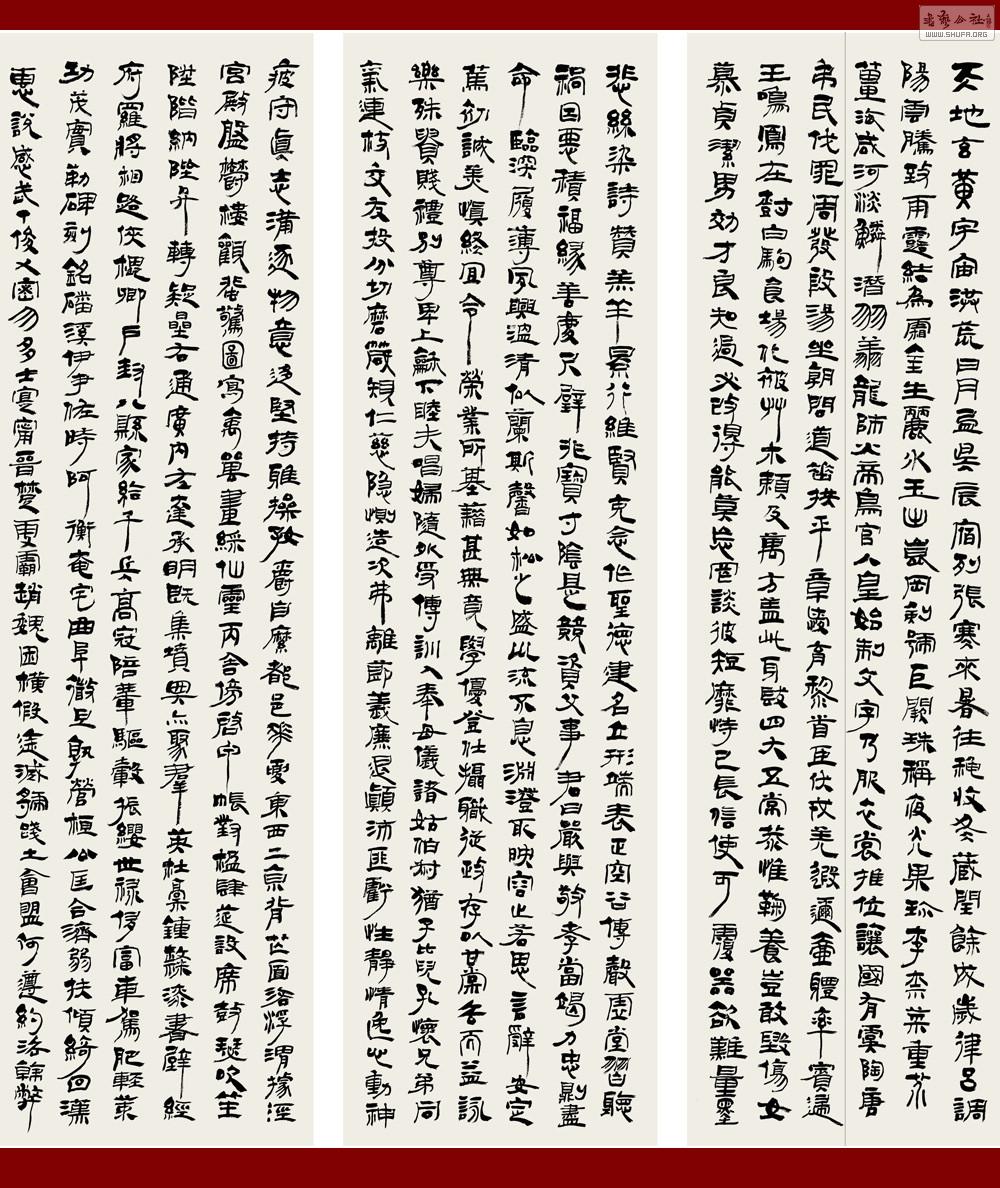 天地玄黃宇宙洪荒日月盈昃辰宿列張寒來暑往秋收冬藏閏餘成歲律呂調
陽雲騰致雨露結為霜金生麗水玉出崑岡劍號巨闕珠稱夜光果珍李柰菜重芥
薑海咸河淡鱗潛羽翔龍師火帝鳥官人皇始制文字乃服衣裳推位讓國有虞陶唐
弔民伐罪周發殷湯坐朝問道垂拱平章愛育黎首臣伏戎羌遐邇壹體率賓歸
王鳴鳳在樹白駒食場化被草木賴及萬方蓋此身髮四大五常恭惟鞠養豈敢毀傷女
慕貞潔男効才良知過必改得能莫忘罔談彼短靡恃己長信使可覆器欲難量墨
悲絲染詩贊羔羊景行維賢克念作聖德建名立形端表正空谷傳聲虛堂習聽
禍因惡積福緣善慶尺璧非寶寸陰是競資父事君曰嚴與敬孝當竭力忠則盡
命臨深履薄夙興溫清似蘭斯馨如松之盛川流不息淵澄取映容止若思言辭安定
篤初誠美慎終宜令榮業所基藉甚無竟學優登仕攝職從政存以甘棠去而益詠
樂殊貴賤禮別尊卑上龢下睦夫唱婦隨外受傅訓入奉母儀諸姑伯叔猶子比兒孔懷兄弟同
氣連枝交友投分切磨箴規仁慈隱惻造次弗離節義廉退顛沛匪虧性靜情逸心動神
疲守真志滿逐物意移堅持雅操好爵自縻都邑華夏東西二京背芒面洛浮渭據涇
宮殿盤鬱樓觀飛驚圖寫禽獸畫綵仙靈丙舍傍啟甲帳對楹肆筵設席鼓瑟吹笙
陞階納陛弁轉疑星右通廣內左達承明既集墳典亦聚群英杜稾鍾隸漆書壁經
府羅將相路俠槐卿戶封八縣家給千兵高冠陪輦驅轂振纓世祿侈富車駕肥輕策
功茂實勒碑刻銘磻溪伊尹佐時阿衡奄宅曲阜微旦孰營桓公匡合濟弱扶傾綺回漢
惠說感武丁俊乂密勿多士寔寧晉楚更霸趙魏困橫假途滅虢踐土會盟何遵約法韓弊
書藝公社
WWW.SHUFA.ORG